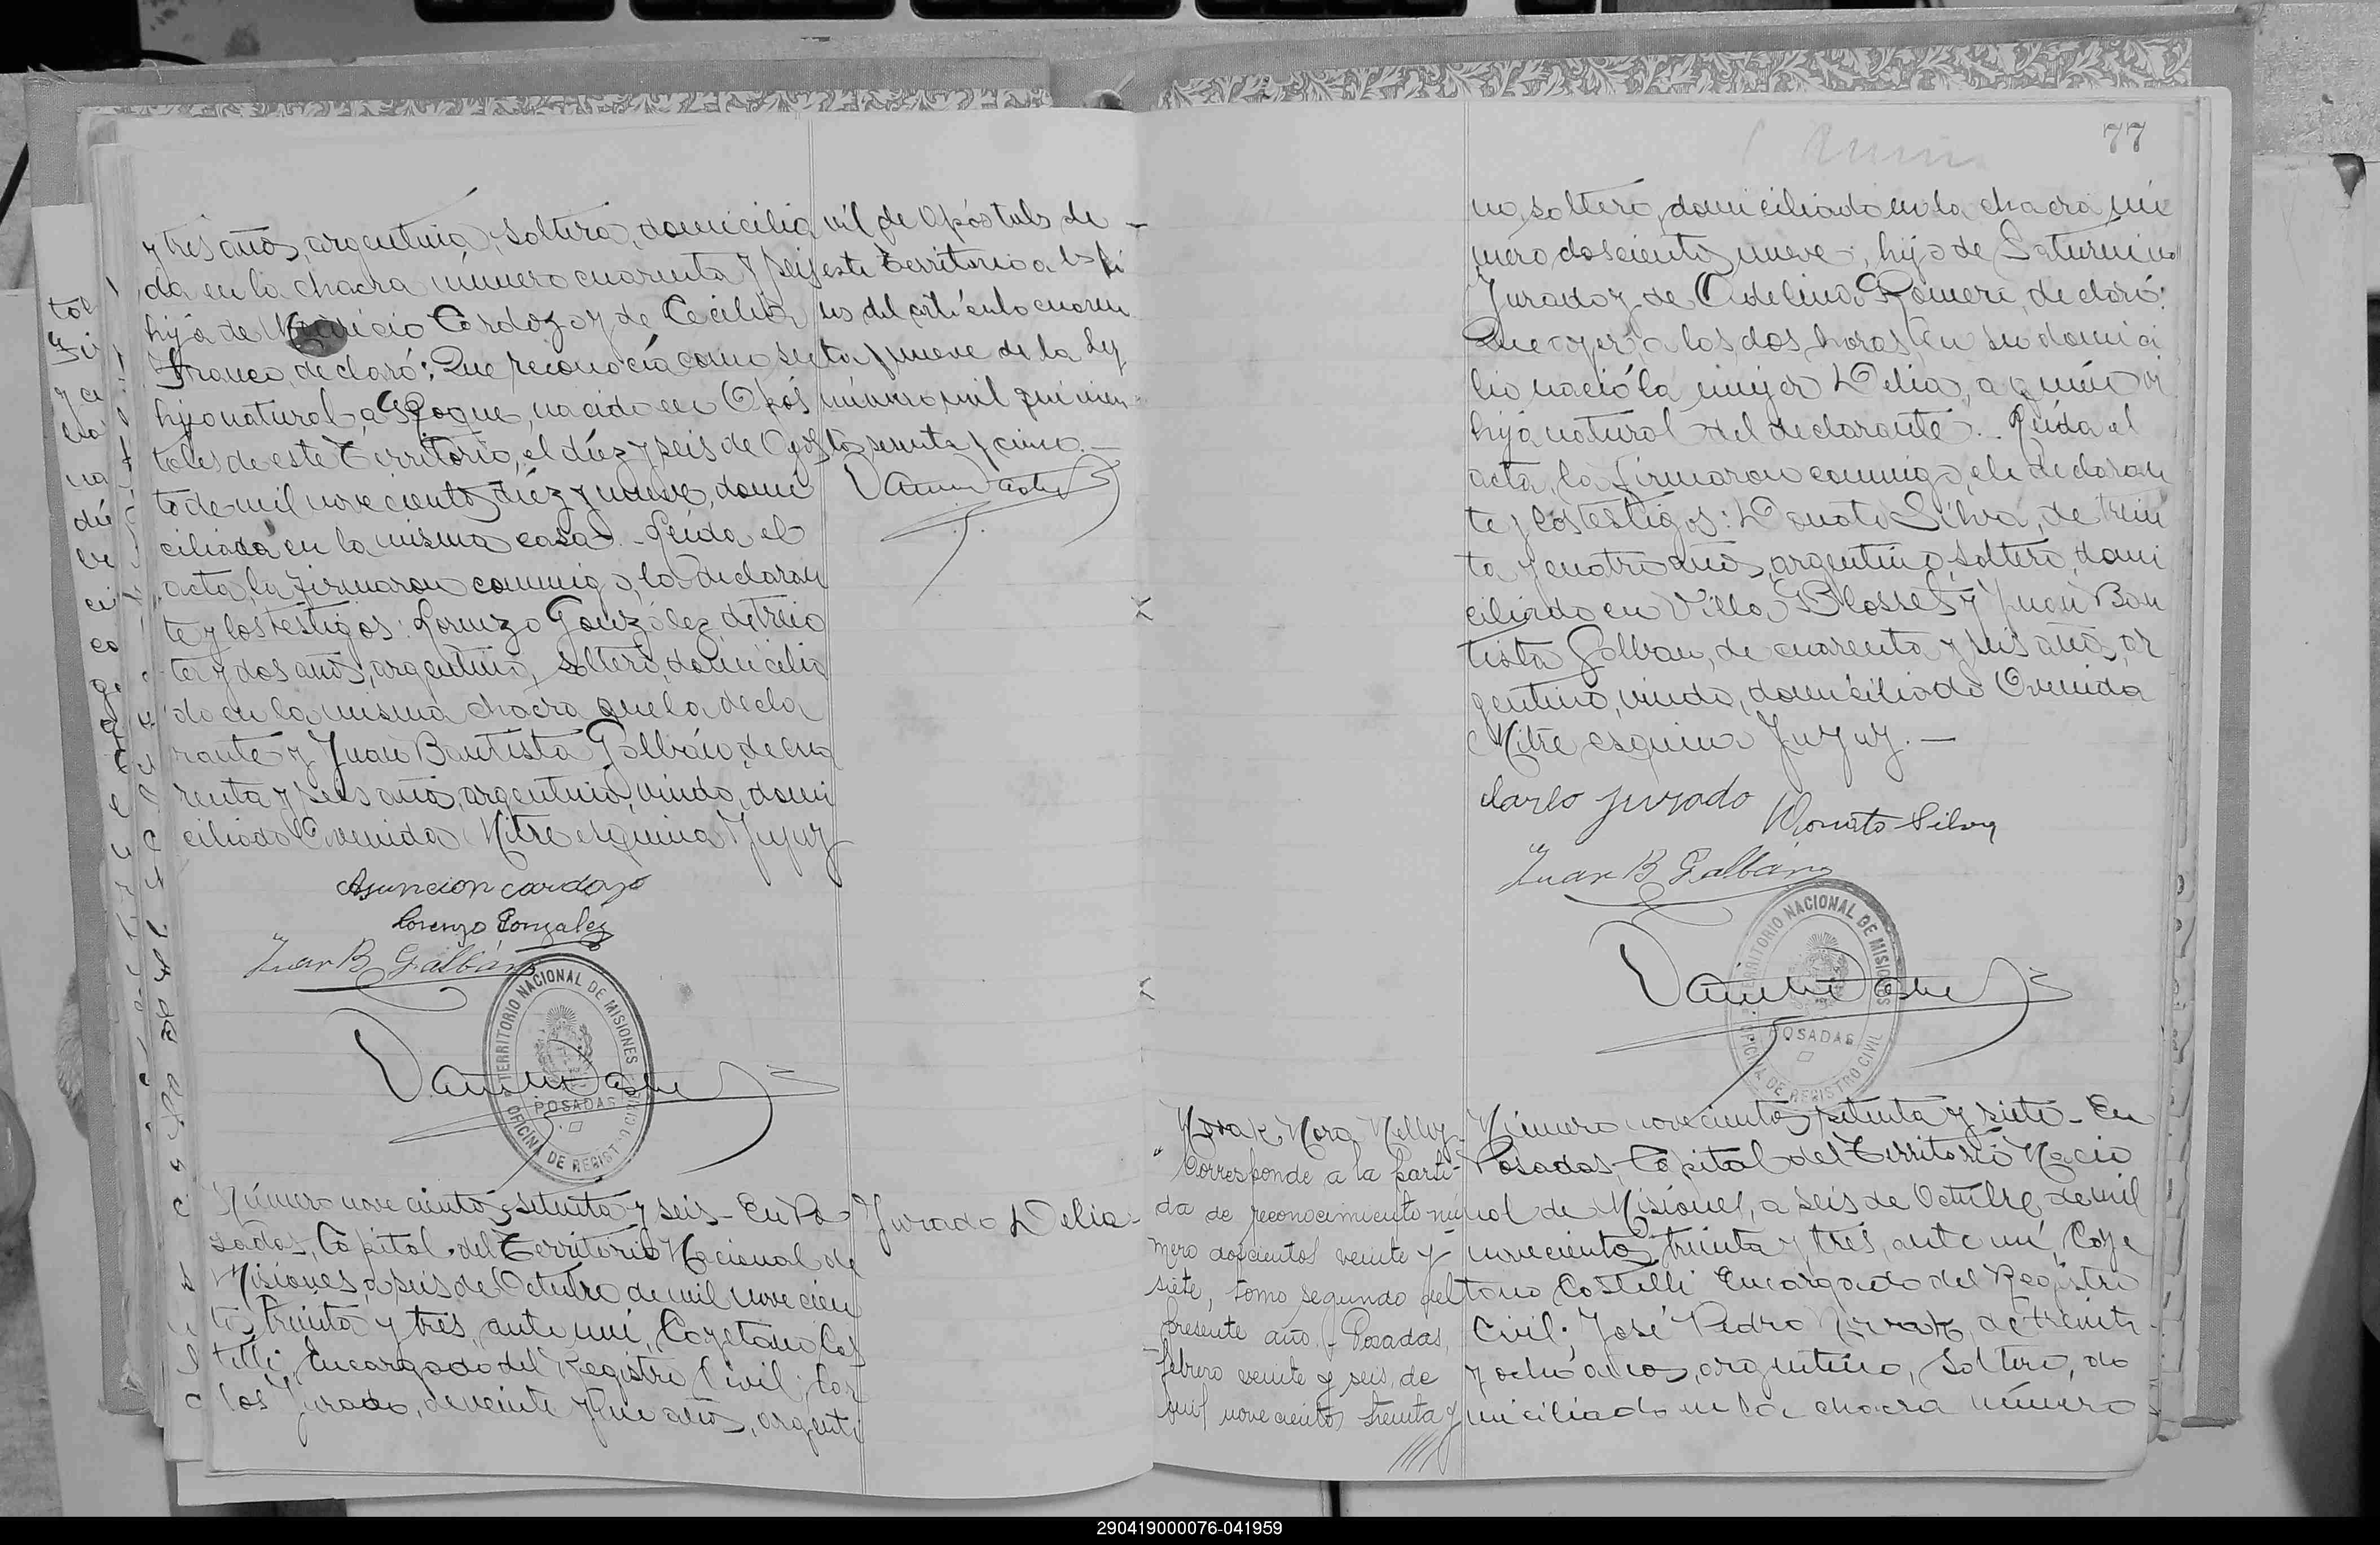 y tres años, argentina, soltera, domicilia
da en la chacra número cuarenta y seis
hija de Cardozo y de Cecilia
Franco, declaró: Que reconocía como su
hijo natural, a Roque, nacido en Após
toles de este Territorio, el diéz y seis de Agos
to de mil novecientos diéz y nueve, domi
ciliada en la misma casa. - Leida el
acta, la firmaron conmigo, la declaran
te y los testigos: Lorenzo González, de trein
ta y dos años, argentino, soltero, domicilia
do en la misma chacra que la decla
rante y Juan Bautista Galbán, de cua
renta y seis años, argentino, viudo, domi
ciliado Avenida Mitre esquina Jujuy
Asuncion cardozo
Lorenzo Gonzalez
Juan B Galbán
TERRITORIO NACIONAL DE MISIONES
POSADAS
OFICINA DE REGISTRO CIVIL
Número novecientos setenta y seis - En Po
sadas, Capital del Territorio Nacional de
Misiones, a seis de Octubre de mil novecien
tos treinta y tres, ante mí, Cayetano Cas
telli, Encargado del Registro Civil; Car
los Jurado, de veinte y años, argenti
vil de Apóstoles de -
este Territorio a los fi
nes del artículo cuaren
ta y nueve de la Ley
número mil quinien
tos sesenta y cinco. -
Jurado Delia -
77
no, soltero, domiciliado en la chacra nú
mero doscientos nueve, hijo de Saturnino
Jurado y de Adelina Romero, declaró:
Que ayer, a las dos horas, en su domici
lio nació la mujer Delia,
hija natural del declarante. - Leida el
acta, la firmaron conmigo, el declaran
te y los testigos: Donato Silva, de trein
ta y cuatro años, argentino, soltero, domi
ciliado en Villa Blosset y Juan Bau
tista Galban, de cuarenta y seis años, ar
gentino, viudo, domiciliado Avenida
Mitre esquina Jujuy. -
Carlo jurado
Donato Silva
Juan B Galbán
TERRITORIO NACIONAL DE MISIONES
POSADAS
OFICINA DE REGISTRO CIVIL
Nora Nelly -
Corresponde a la parti-
da de reconocimiento nú
mero doscientos veinte y
siete, tomo segundo del
presente año. - Posadas,
febrero veinte y seis de
mil novecientos treinta y
Número novecientos setenta y siete - En
Posadas, Capital del Territorio Nacio
nal de Misiones, a seis de Octubre de mil
novecientos treinta y tres, ante mí, Caye
tano Castelli Encargado del Registro
Civil; José Pedro de treinta
y ocho años, argentino, soltero, do
miciliado en la chacra número
290419000076-041959